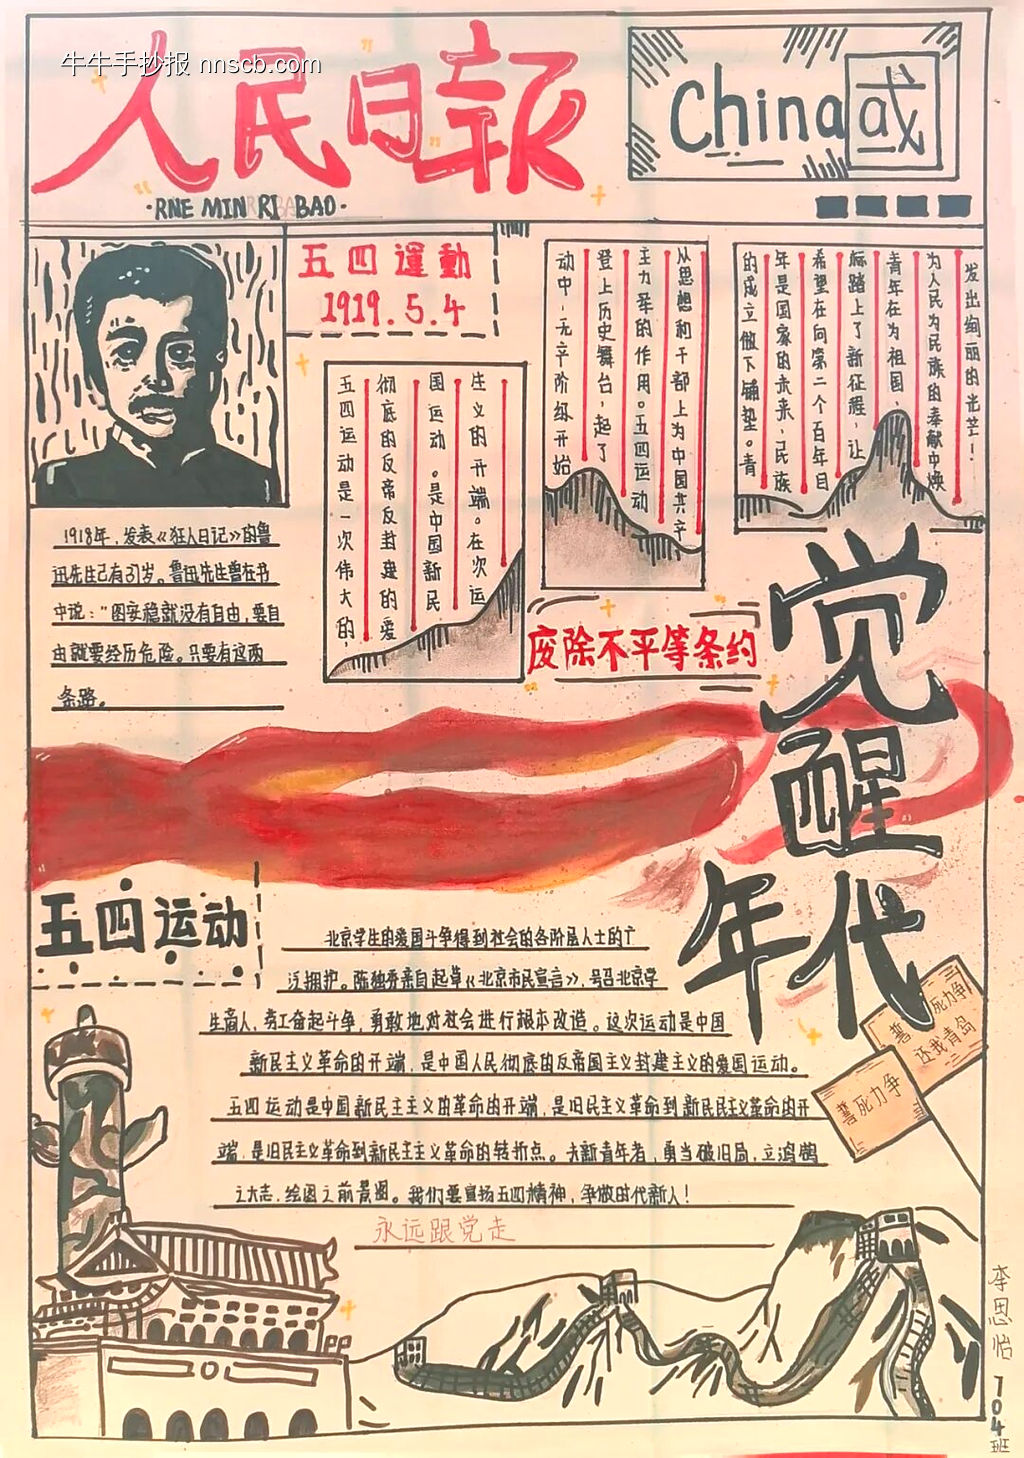 牛牛手抄报 nnscb.com
人民日報
·RNE MIN RI BAO·
China
或
五四運動
1919.5.4
五四运动是一次伟大的,
彻底的反帝反封建的爱
国运动。是中国新民
主义的开端。在次运
动中,无产阶级开始
登上历史舞台,起了
主力军的作用。五四运动
从思想和干部上为中国共产
的成立做下铺垫。青
年是国家的未来,民族
希望在向第二个百年目
标踏上了新征程,让
青年在为祖国,
为人民为民族的奉献中焕
发出绚丽的光芒!
1918年,发表《狂人日记》的鲁
迅先生已有37岁。鲁迅先生曾在书
中说:"图安稳就没有自由,要自
由就要经历危险。只要有这两
条路。
废除不平等条约
觉醒
年代
五四运动
北京学生的爱国斗争得到社会的各阶层人士的广
泛拥护。陈独秀亲自起草《北京市民宣言》,号召北京学
生商人,劳工奋起斗争,勇敢地对社会进行根本改造。这次运动是中国
新民主义革命的开端,是中国人民彻底的反帝国主义封建主义的爱国运动。
五四运动是中国新民主主义的革命的开端,是旧民主义革命到新民民主义革命的开
端,是旧民主义革命到新民主主义革命的转折点。夫新青年者,勇当破旧局,立鸿鹄
之大志,绘图之前景图。我们要宣扬五四精神,争做时代新人!
永远跟党走
誓死力争
还我青岛
誓死力争
李思怡 704班